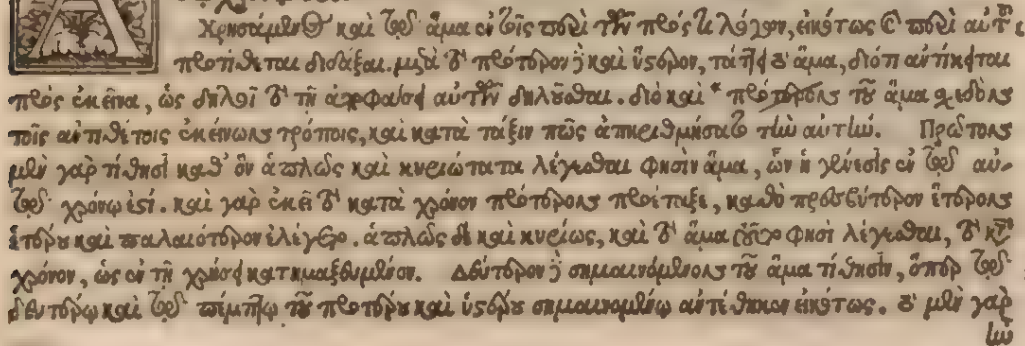 Χρησάμενος καὶ τῷ ἅμα ἐν τοῖς περὶ τῶν πρός τι λόγον, εἰκότως καὶ περὶ αὐτοῦ
προτίθεται διδάξαι. μετὰ δὲ πρότερον καὶ ὕστερον, τάττει τὸ ἅμα, διότι ἀντίκειται
πρὸς ἐκεῖνα, ὡς δηλοῖ τὸ τῇ ἀποφάσει αὐτῶν δηλοῦσθαι. διὸ καὶ * προτέρους τοῦ ἅμα σχεδὸν
τοῖς ἀντιθέτοις ἐκείνων τρόποις, καὶ κατὰ τάξιν πῶς ἀπηριθμήσατο τὴν αὐτήν. Πρῶτον
μὲν γὰρ τίθησι καθ' ὃν ἁπλῶς καὶ κυριώτατα λέγεσθαι φησὶν ἅμα, ὧν ἡ γένεσις ἐν τῷ αὐ-
τῷ χρόνῳ ἐστί. καὶ γὰρ ἐκεῖ τὸ κατὰ χρόνον πρότερον προέταξε, καθὸ πρεσβύτερον ἕτερον
ἑτέρου καὶ παλαιότερον ἐλέγετο. ἁπλῶς δὲ καὶ κυρίως, καὶ τὸ ἅμα φησι λέγεσθαι, τὸ κατὰ
χρόνον, ὡς ἐν τῇ χρήσει κατημαξευμένον. Δεύτερον δὲ σημαινόμενον τοῦ ἅμα τίθησιν, ὅπερ τῷ
δευτέρῳ καὶ τῷ πέμπτῳ τοῦ προτέρου καὶ ὑστέρου σημαινομένῳ ἀντέθηκεν εἰκότως. ὃ μὲν γὰρ
ἦν